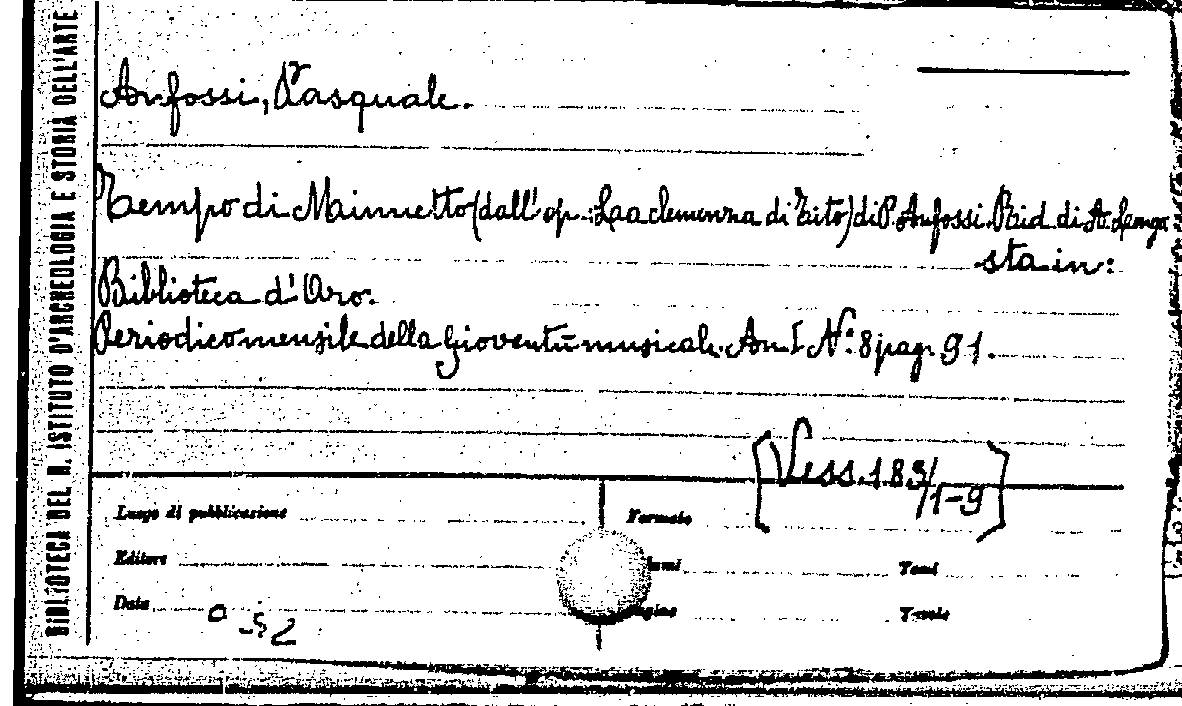 BIBLIOTECA DEL R. ISTITUTO D'ARCHEOLOGIA E STORIA DELL'ARTE
Anfossi, Pasquale.
Tempo di Minuetto (dall' op.: La clemenza di Tito) di P. Anfossi. Rid. di A. Longo
sta in:
Biblioteca d'Oro.
Periodico mensile della gioventù musicale. An. I N.° 8 pag. 91.
[Vess. 183/1-9]
Luogo di pubblicazione
Formato
Editore
Tomi
Data
Pagine
Tavole